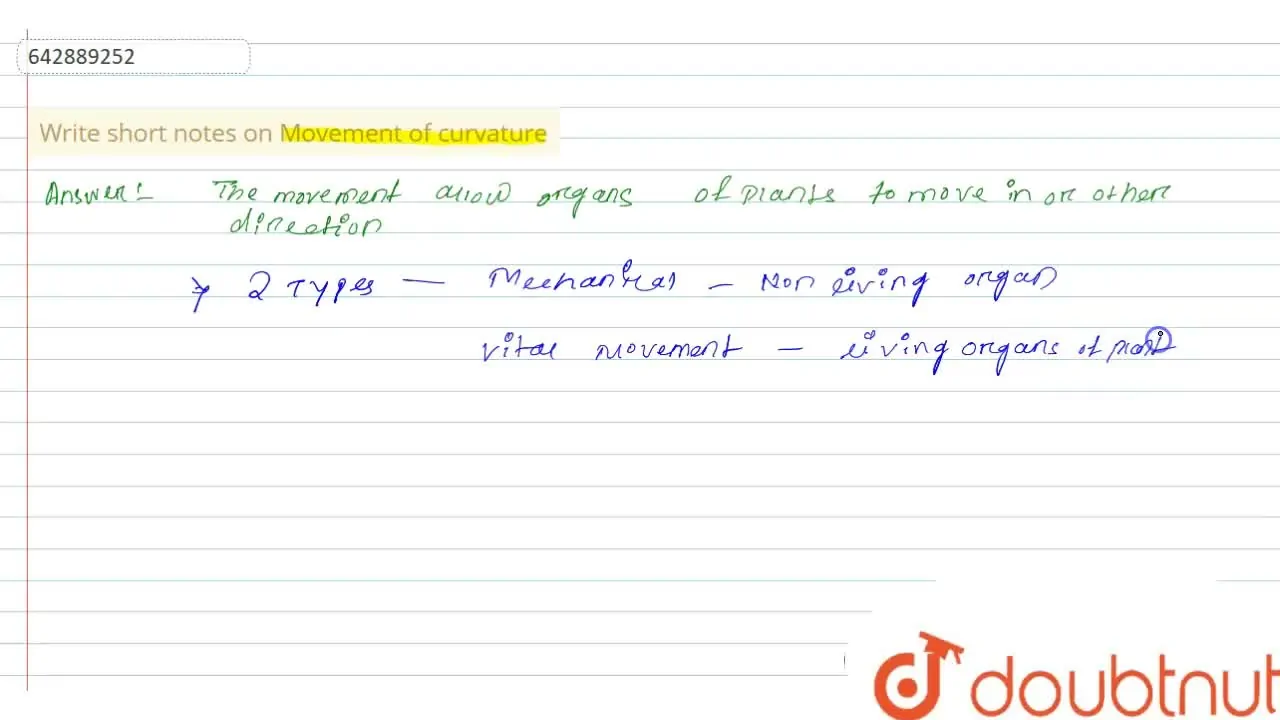 642889252
Write short notes on Movement of curvature
Answer:- The movement allow organs of plants to move in or other
direction
→ 2 Types — Mechanical — Non living organ
vital movement — living organs of plant
doubtnut